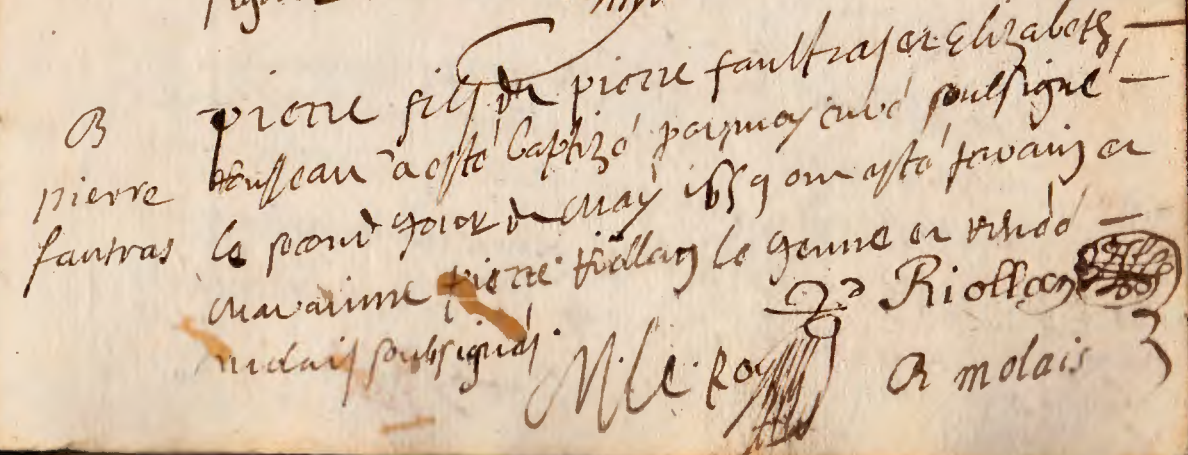 B
pierre
fautras
pierre fils de pierre faultras et Elizabeth
rousseau a esté baptizé par moy curé soubsigné
le second jour de may ont esté parain et
maraine pierre Riollan le jeune et renée
molais soubsignés
P Riollan
M. Le Roy
R molais